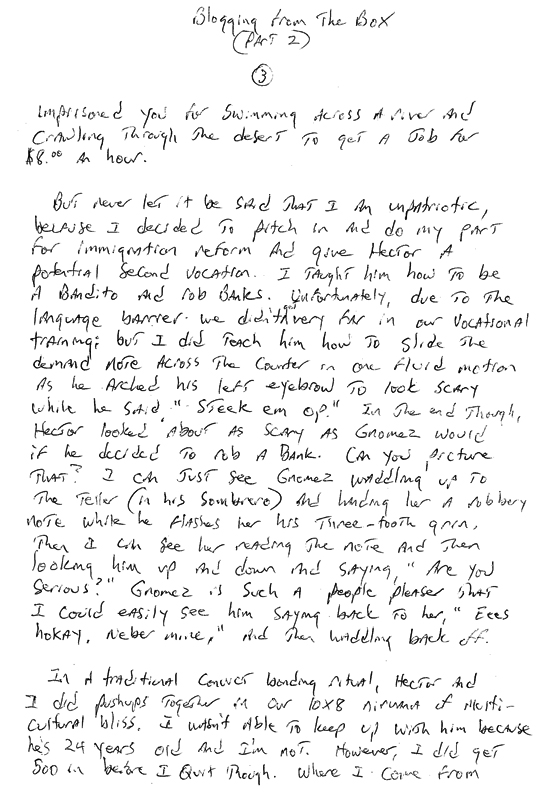 Blogging from The Box
(Part 2)
3
imprisoned you for swimming across a river and
crawling through the desert to get a job for
$8.00 an hour.
But never let it be said that I am unpatriotic,
because I decided to pitch in and do my part
for immigration reform and give Hector a
potential second vocation. I taught him how to be
a Bandito and rob Banks. Unfortunately, due to the
language barrier we didn't get very far in our vocational
training; but I did teach him how to slide the
demand note across the counter in one fluid motion
as he arched his left eyebrow to look scary
while he said "Steek em op." In the end though,
Hector looked about as scary as Gnomez would
if he decided to rob a Bank. Can you picture
that? I can just see Gnomez waddling up to
the Teller (in his Sombrero) and handing her a robbery
note while he flashes her his Three-tooth grin,
Then I can see her reading the note and then
looking him up and down and saying, "Are you
serious?" Gnomez is such a people pleaser that
I could easily see him saying back to her, "Eees
hokay, neber mine," and then waddling back off.
In a traditional Convict bonding ritual, Hector and
I did pushups together in our 10x8 nirvana of multi-
cultural bliss. I wasn't able to keep up with him because
he's 24 years old and I'm not. However, I did get
500 in before I quit though. Where I come from